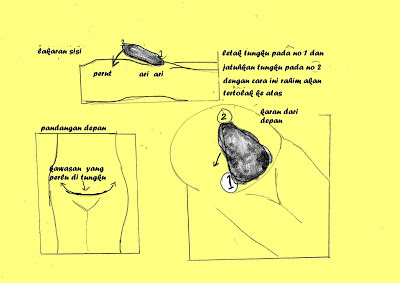 lakaran sisi
2
perut
ari ari
letak tungku pada no 1 dan
jatuhkan tungku pada no 2
dengan cara ini rahim akan
tertolak ke atas
pandangan depan
kawasan yang
perlu di tungku
karan dari
depan
2
1